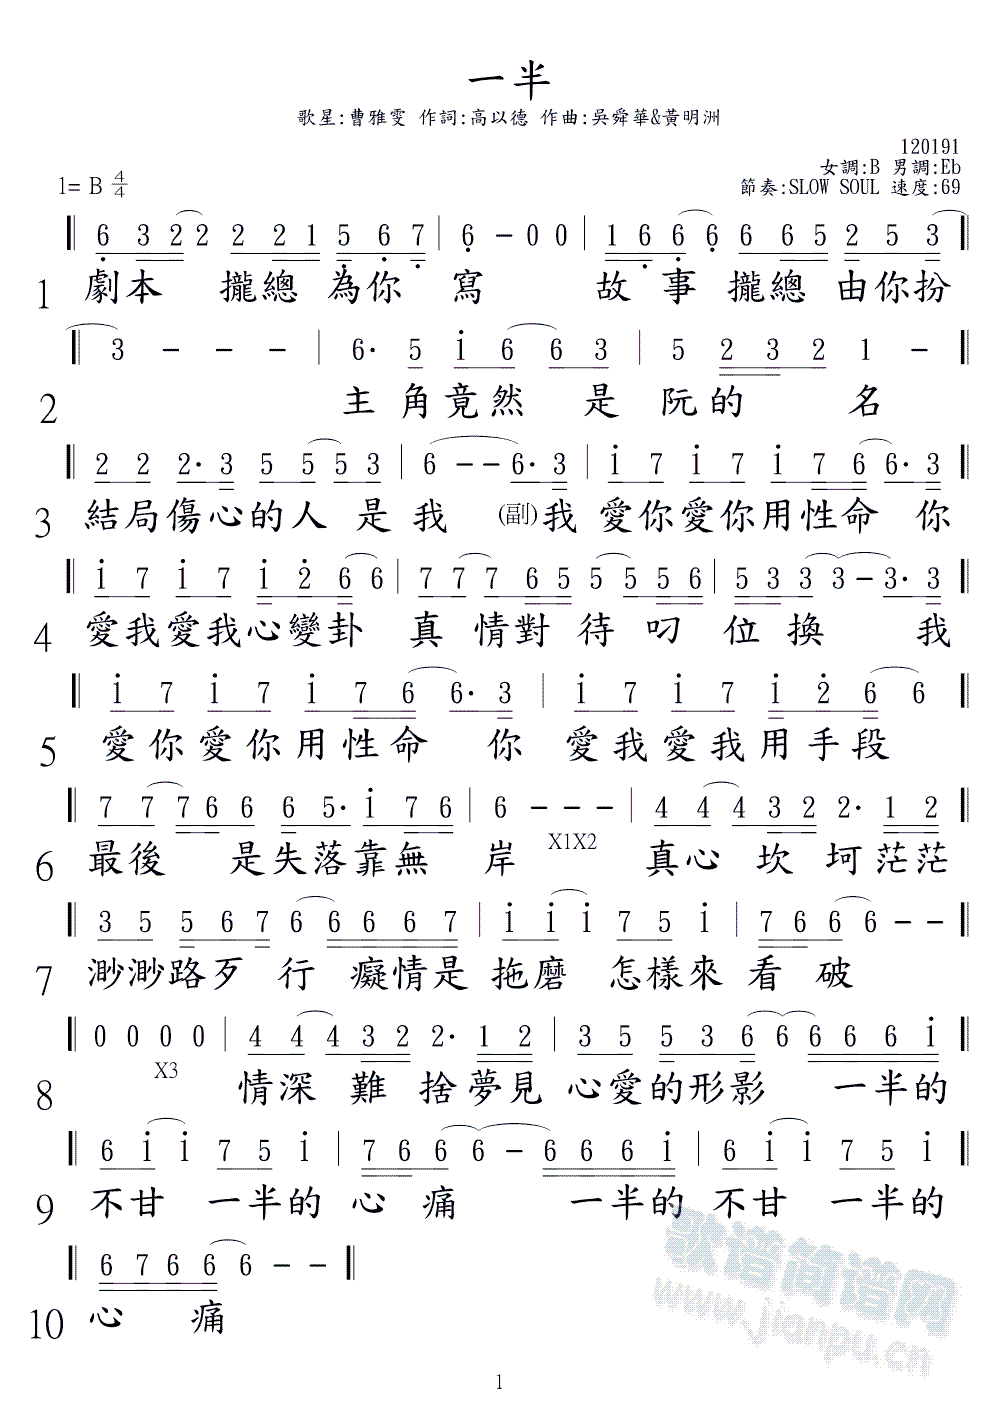 一半
歌星:曹雅雯 作詞:高以德 作曲:吳舜華&黃明洲
120191
女調:B 男調:Eb
1= B 4/4
節奏:SLOW SOUL 速度:69
‖ 6 3 2 2 2 2 1 5 6 7 | 6 - 0 0 | 1 6 6 6 6 6 5 2 5 3 ‖
1 劇本 攏總為你 寫 故 事 攏總 由你扮
‖ 3 - - - | 6· 5 i 6 6 3 | 5 2 3 2 1 - ‖
2 主角竟然 是 阮的 名
‖ 2 2 2· 3 5 5 5 3 | 6 - - 6· 3 | i 7 i 7 i 7 6 6· 3 ‖
3 結局傷心的人 是 我 (副)我 愛你愛你用性命 你
‖ i 7 i 7 i 2 6 6 | 7 7 7 6 5 5 5 5 6 | 5 3 3 3 - 3· 3 ‖
4 愛我愛我心變卦 真 情對 待 叼 位 換 我
‖ i 7 i 7 i 7 6 6· 3 | i 7 i 7 i 2 6 6 ‖
5 愛你愛你用性命 你 愛我愛我用手段
‖ 7 7 7 6 6 6 5· i 7 6 | 6 - - - | 4 4 4 3 2 2· 1 2 ‖
6 最後 是失落靠無 岸 X1X2 真心 坎 坷茫茫
‖ 3 5 5 6 7 6 6 6 6 7 | i i i 7 5 i | 7 6 6 6 - - ‖
7 渺渺路歹 行 癡情是 拖磨 怎樣來 看 破
‖ 0 0 0 0 | 4 4 4 3 2 2· 1 2 | 3 5 5 3 6 6 6 6 6 i ‖
X3
8 情深 難 捨夢見 心愛的形影 一半的
‖ 6 i i 7 5 i | 7 6 6 6 - 6 6 6 i | 6 i i 7 5 i ‖
9 不甘 一半的 心 痛 一半的 不甘 一半的
‖ 6 7 6 6 6 - - ‖
10 心 痛
歌谱简谱网
www.jianpu.cn
1